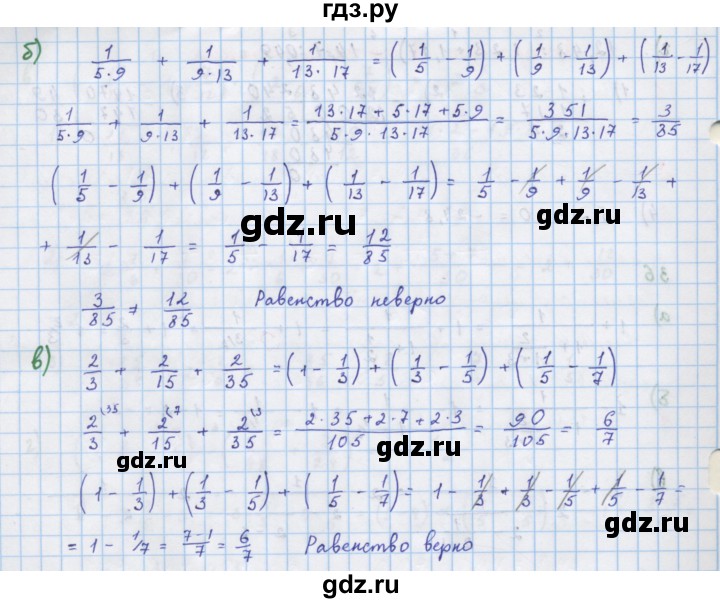 гдз.ру
б) 1/(5·9) + 1/(9·13) + 1/(13·17) = (1/5 − 1/9) + (1/9 − 1/13) + (1/13 − 1/17)
1/(5·9) + 1/(9·13) + 1/(13·17) = (13·17 + 5·17 + 5·9)/(5·9·13·17) = 351/(5·9·13·17) = 3/85
(1/5 − 1/9) + (1/9 − 1/13) + (1/13 − 1/17) = 1/5 − 1/9 + 1/9 − 1/13 +
gdz.ru gdz.ru
+ 1/13 − 1/17 = 1/5 − 1/17 = 12/85
3/85 ≠ 12/85 Равенство неверно
в) 2/3 + 2/15 + 2/35 = (1 − 1/3) + (1/3 − 1/5) + (1/5 − 1/7)
2/3\35 + 2/15\7 + 2/35\3 = (2·35 + 2·7 + 2·3)/105 = 90/105 = 6/7
gdz.ru gdz.ru
(1 − 1/3) + (1/3 − 1/5) + (1/5 − 1/7) = 1 − 1/3 + 1/3 − 1/5 + 1/5 − 1/7 =
= 1 − 1/7 = (7−1)/7 = 6/7 Равенство верно
gdz.ru